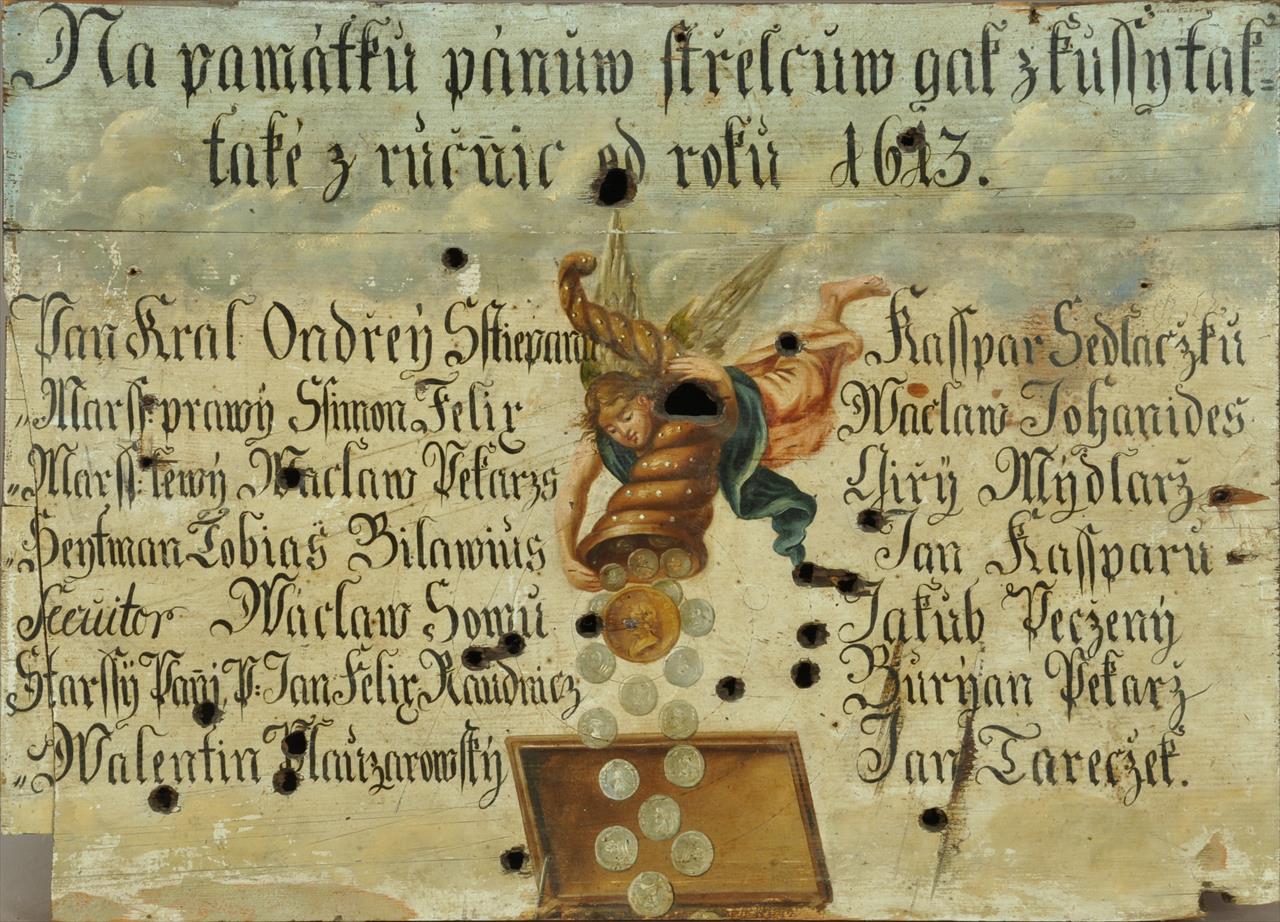 Na památků pánůw střelcůw gak z kůssÿ tak=
také z růčñic od roků 1613.
Pan Kral Ondřeÿ Sstiepanů
„Marss: prawÿ Ssimon Felix
„Marss: lewÿ Waclaw Pekarzs
„Heytman Tobiaš Bilawiůs
Secuitor Wáclaw Somů
Starssÿ Pañi, P: Jan Felix Raudnicz
„Walentin Naůzarowskÿ
Kasspar Sedlaczků
Waclaw Johanides
Giřÿ Mÿdlarž
Jan Kassparů
Jakůb Peczenÿ
Bůrÿan Pekarž
Jan Tareczek.